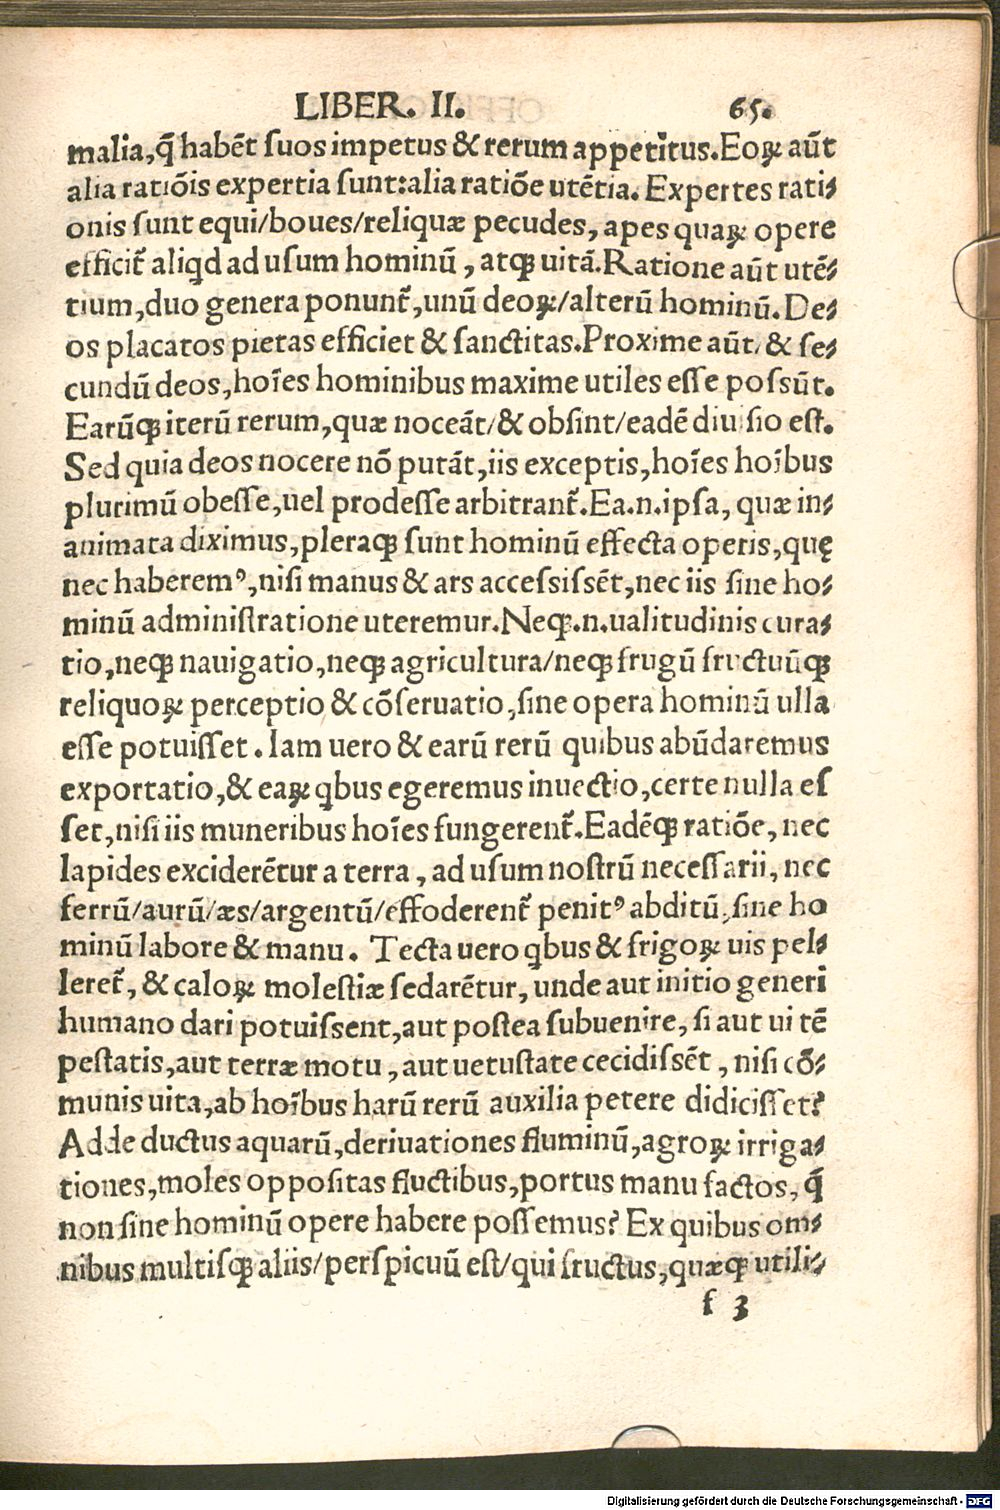 LIBER. II. 65.
malia,q̃ habẽt ſuos impetus & rerum appetitus.Eoꝝ aũt
alia ratiõis expertia ſunt:alia ratiõe utẽtia. Expertes rati⸗
onis ſunt equi/boues/reliquæ pecudes, apes quaꝝ opere
efficit̃ aliqd ad uſum hominũ, atqꝫ uitã.Ratione aũt utẽ⸗
tium,duo genera ponunt̃,unũ deoꝝ/alterũ hominũ. De⸗
os placatos pietas efficiet & ſanctitas.Proxime aũt/ & ſe⸗
cundũ deos,hoĩes hominibus maxime utiles eſſe poſsũt.
Earũqꝫ iterũ rerum,quæ noceãt/& obſint/eadẽ diuiſio eſt.
Sed quia deos nocere nõ putãt,iis exceptis,hoĩes hoĩbus
plurimũ obeſſe,uel prodeſſe arbitrant̃.Ea.n.ipſa, quæ in⸗
animata diximus,pleraqꝫ ſunt hominũ effecta operis,quę
nec haberemꝰ,niſi manus & ars acceſsiſsẽt,nec iis ſine ho⸗
minũ adminiſtratione uteremur.Neqꝫ.n.ualitudinis cura⸗
tio,neqꝫ nauigatio,neqꝫ agricultura/neqꝫ frugũ fructuũqꝫ
reliquoꝝ perceptio & cõſeruatio,ſine opera hominũ ulla
eſſe potuiſſet. Iam uero & earũ rerũ quibus abũdaremus
exportatio,& eaꝝ qbus egeremus inuectio,certe nulla eſ
ſet,niſi iis muneribus hoĩes fungerent̃.Eadẽqꝫ ratiõe, nec
lapides exciderẽtur a terra, ad uſum noſtrũ neceſſarii, nec
ferrũ/aurũ/æs/argentũ/effoderent̃ penitꝰ abditũ,ſine ho
minũ labore & manu. Tecta uero qbus & frigoꝝ uis pel⸗
leret̃, & caloꝝ moleſtiæ ſedarẽtur, unde aut initio generi
humano dari potuiſsent,aut poſtea ſubuenire, ſi aut ui tẽ
peſtatis,aut terræ motu, aut uetuſtate cecidiſsẽt, niſi cõ⸗
munis uita,ab hoĩbus harũ rerũ auxilia petere didiciſſet?
Adde ductus aquarũ,deriuationes fluminũ,agroꝝ irriga⸗
tiones,moles oppoſitas fluctibus,portus manu factos, q̃
non ſine hominũ opere habere poſſemus? Ex quibus om⸗
nibus multiſqꝫ aliis/perſpicuũ eſt/qui fructus,quæqꝫ utili⸗
f 3
Digitalisierung gefördert durch die Deutsche Forschungsgemeinschaft - DFG